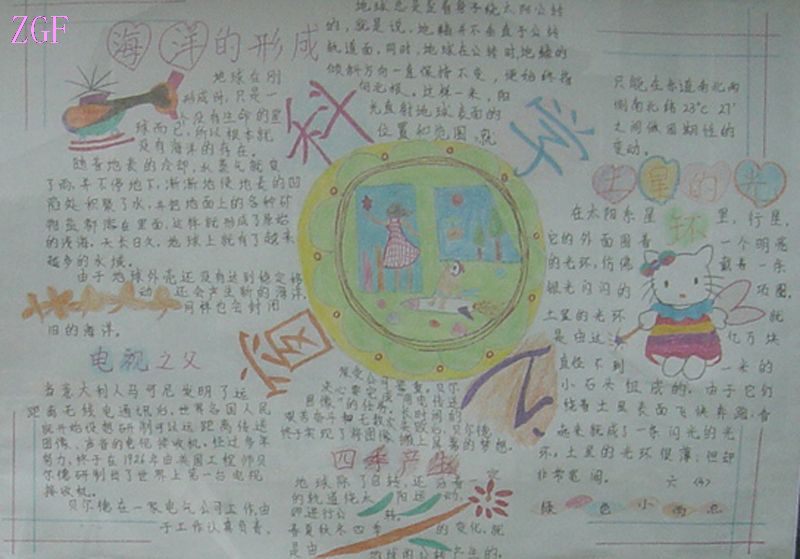 ZGF
海洋的形成
地球在刚
形成时,只是一
个没有生命的星
球而已,所以根本就
没有海洋的存在。
随着地表的冷却,水蒸气就变
了雨,并不停地下,渐渐地使地表的凹
陷处积聚了水,并把地面上的各种矿
物盐都溶在里面,这样就形成了原始
的浅海。天长日久,地球上就有了越来
越多的水域。
由于地球外壳还没有达到稳定
动 还会产生新的海洋,
同样也会封闭
旧的海洋。
电视之父
当意大利人马可尼发明了远
距离无线电通讯后,世界各国人民
就开始设想研制可以远距离传送
图像、声音的电视接收机。经过多年
努力,终于在1926年由英国工程师贝
尔德研制出了世界上第一台电视
接收机。
贝尔德在一家电气公司工作,由
于工作认真负责,
图像"的任务。用电传送
艰苦奋斗和无数次失败后,贝尔德
终于实现了将图像搬上屏幕的梦想。
科学窗下
四季产生
地球除了自转,还沿着一定
的轨道绕太阳运动,
即进行公转。
春夏秋冬四季的变化,就
是由 地球的公转产生的。
地球总是歪着身子绕太阳公转
的,就是说,地轴并不垂直于公转
轨道面,同时,地球在公转时,地轴的
倾斜方向一直保持不变,
阳
光直射地球表面的
位置和范围,就
只能在赤道南北两
侧南北纬23°C 27'
之间做周期性的
变动。
土星的光环
在太阳系星 里,行星,
它的外面围着 一个明亮
的光环,仿佛 戴着一条
银光闪闪的 项圈,
土星的光环 就
是由这 亿万块
直径不到 一米的
小石头组成的。由于它们
绕着土星表面飞快奔跑,看
起来就成了一条闪光的光
环。土星的光环很薄,但却
非常宽阔。
六(4)
绿色小雨点